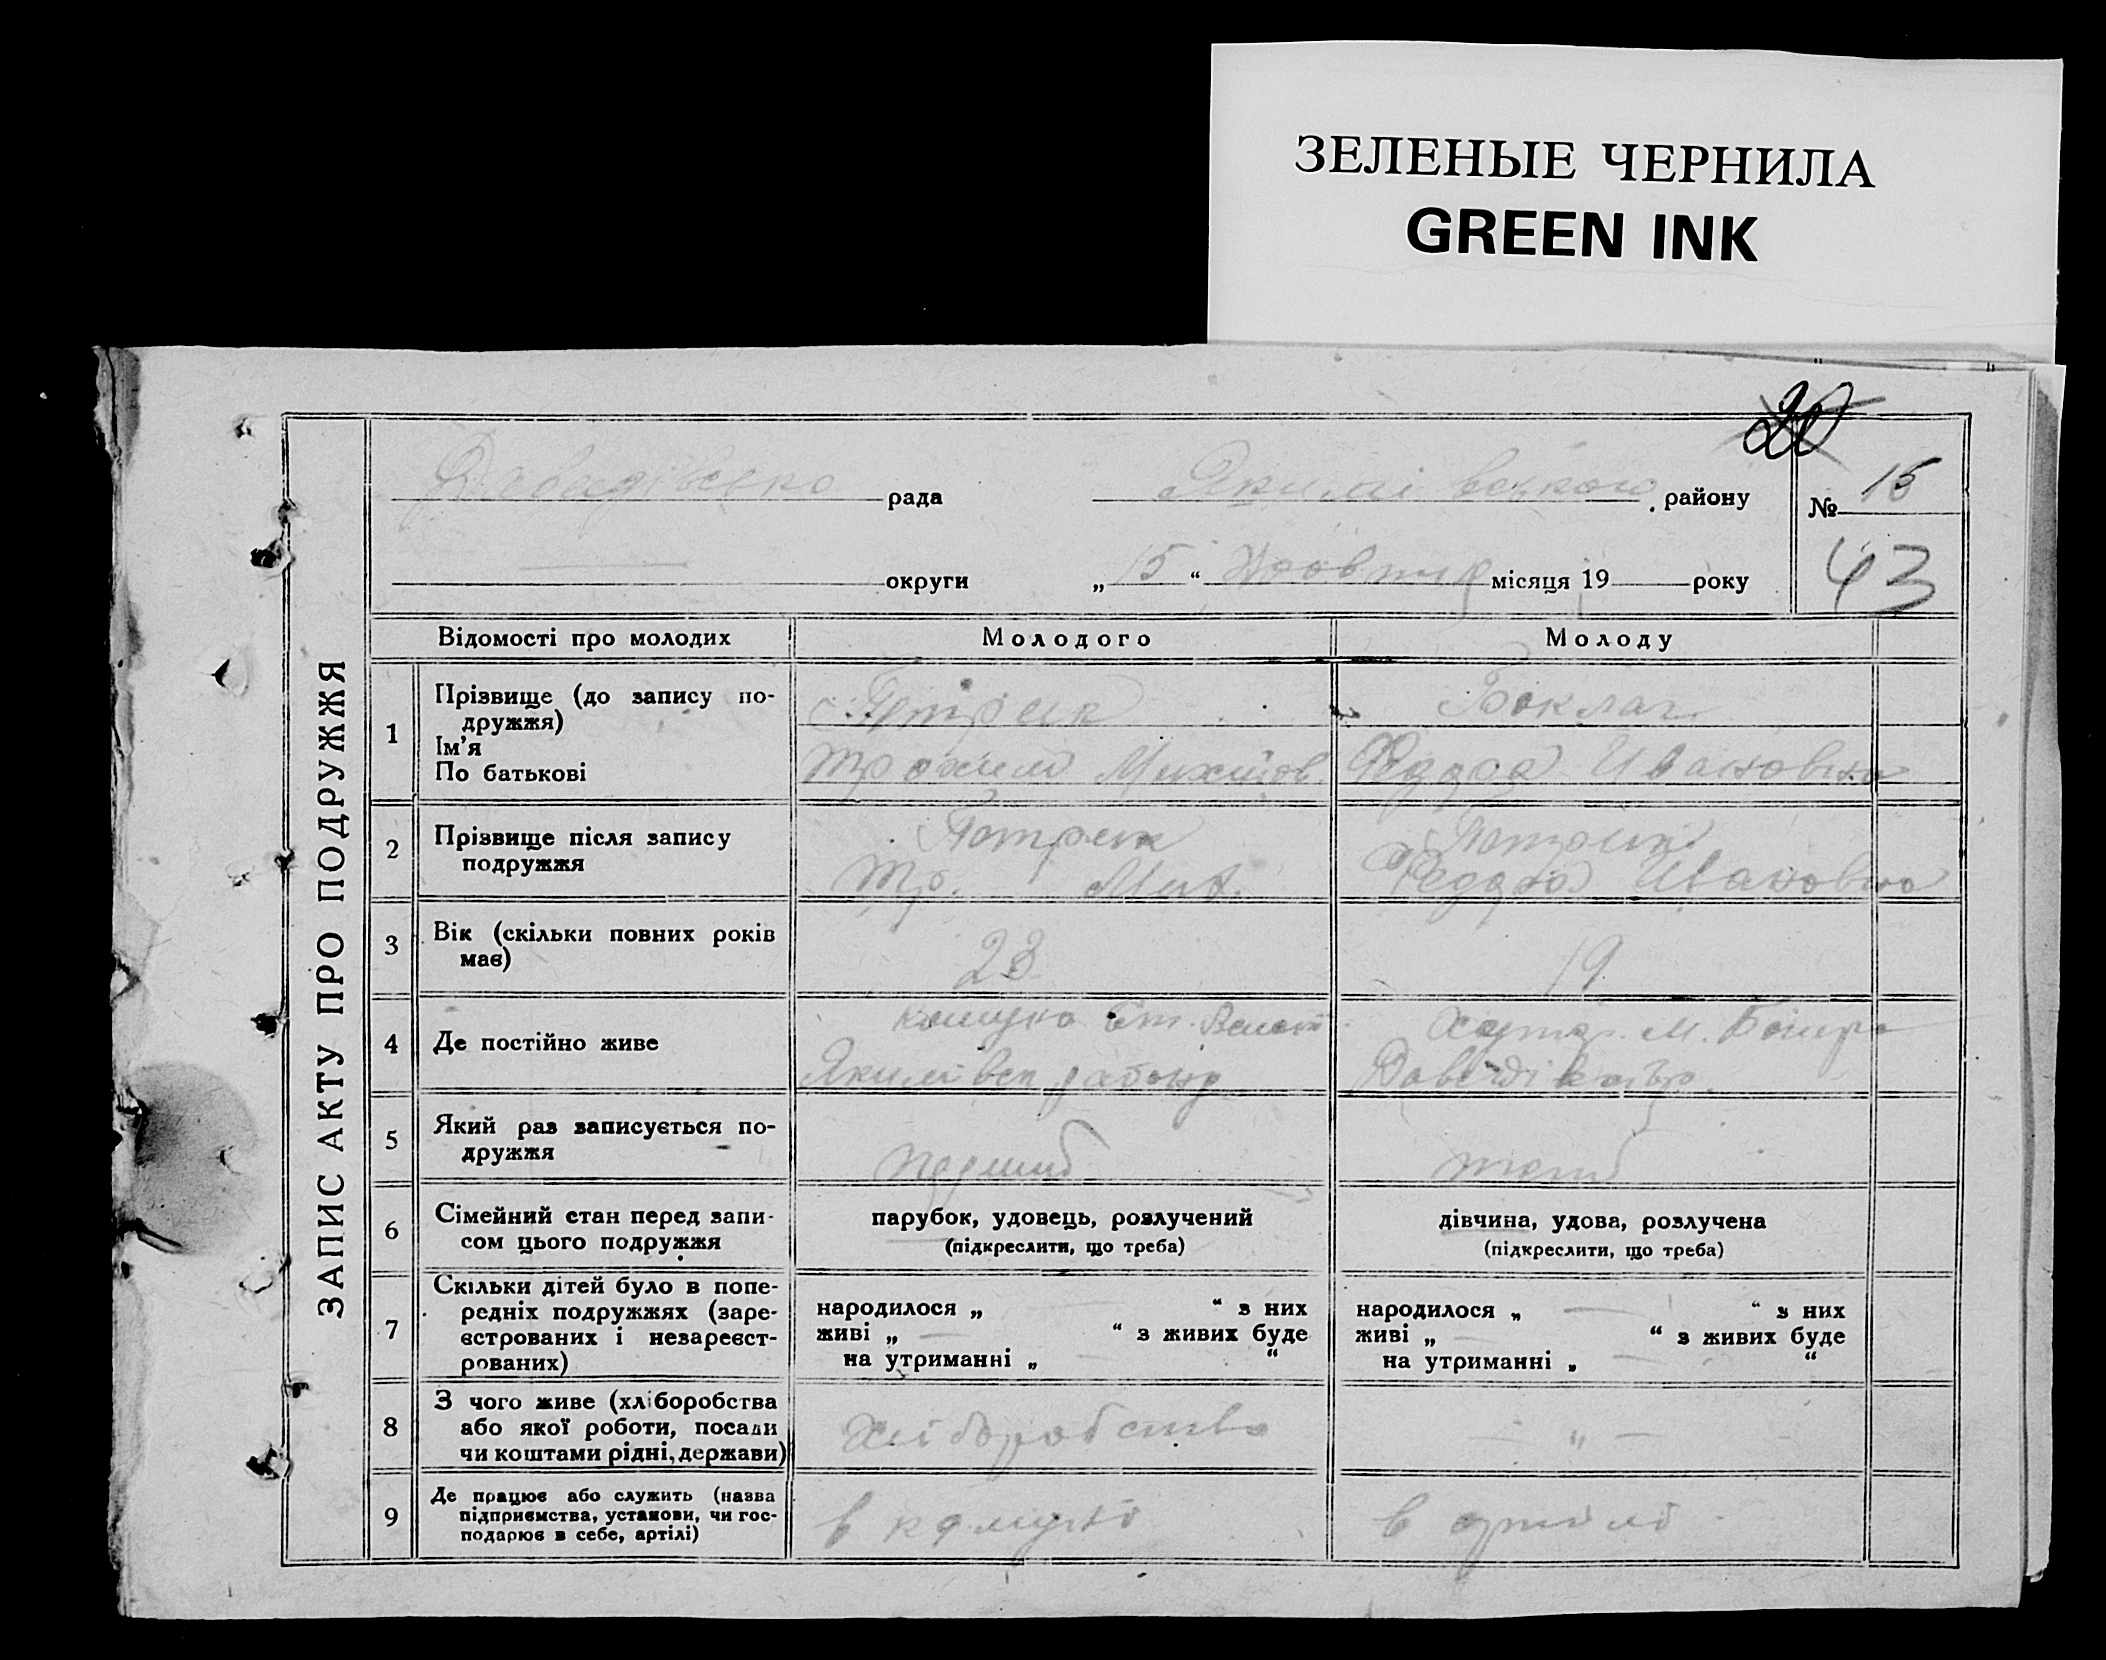 ЗЕЛЕНЫЕ ЧЕРНИЛА
GREEN INK
20
ЗАПИС АКТУ ПРО ПОДРУЖЖЯ
рада
району
№ 15
округи
„ 15 “ Жовтня місяця 19 року
43
Відомості про молодих
Молодого
Молоду
1
Прізвище (до запису по-
дружжя)
Ім’я
По батькові
Боклаг
Трохим
Федора Ивановна
2
Прізвище після запису
подружжя
Тр. Мих.
Федора Ивановна
3
Вік (скільки повних років
має)
23
19
4
Де постійно живе
району
5
Який раз записується по-
дружжя
6
Сімейний стан перед запи-
сом цього подружжя
парубок, удовець, розлучений
(підкреслити, що треба)
дівчина, удова, розлучена
(підкреслити, що треба)
7
Скільки дітей було в попе-
редніх подружжях (заре-
єстрованих і незареєст-
рованих)
народилося „ — “ з них
живі „ — “ з живих буде
на утриманні „ — “
народилося „ — “ з них
живі „ — “ з живих буде
на утриманні „ — “
8
З чого живе (хліборобства
або якої роботи, посади
чи коштами рідні, держави)
хліборобство
— „ —
9
Де працює або служить (назва
підприємства, установи, чи гос-
подарює в себе, артілі)
в комуні
в артілі